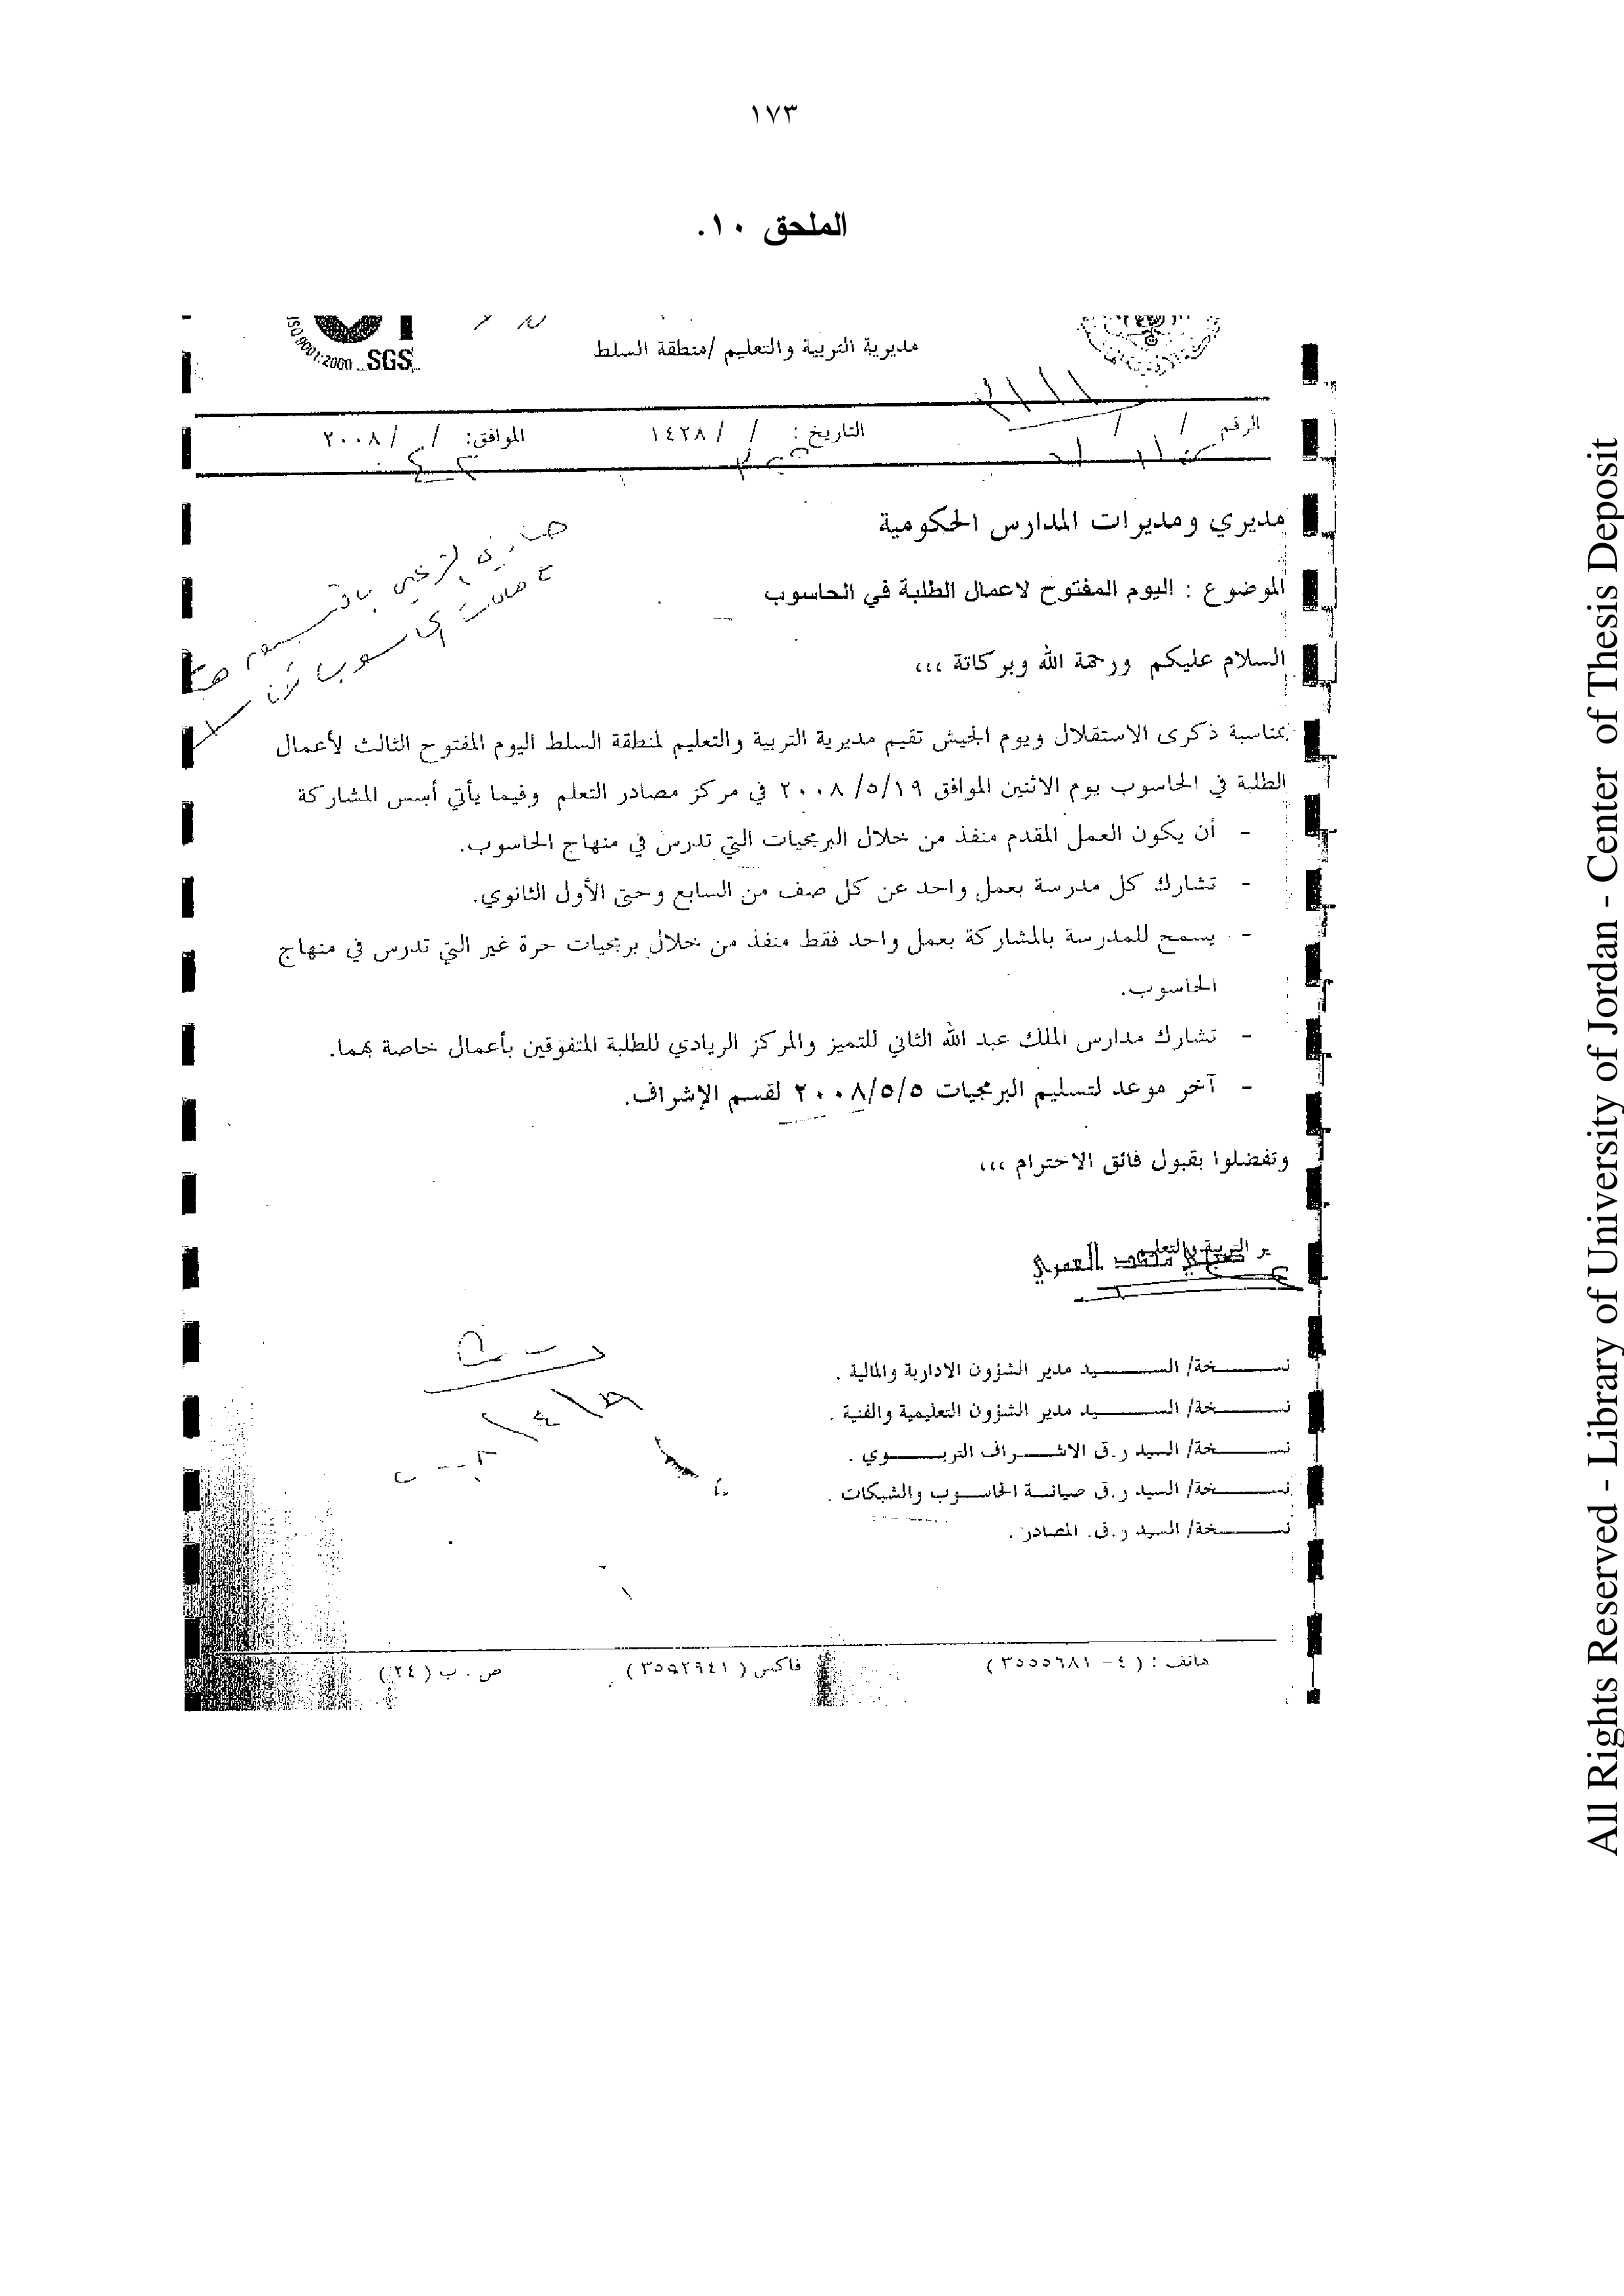 ١٧٣
الملحق ١٠.
ISO 9001:2000 SGS
مديرية التربية والتعليم /منطقة السلط
الرقم / /
التاريخ : / / ١٤٢٨
الموافق: / / ٢٠٠٨
مديري ومديرات المدارس الحكومية
الموضوع : اليوم المفتوح لاعمال الطلبة في الحاسوب
السلام عليكم ورحمة الله وبركاتة ،،،
بمناسبة ذكرى الاستقلال ويوم الجيش تقيم مديرية التربية والتعليم لمنطقة السلط اليوم المفتوح الثالث لأعمال
الطلبة في الحاسوب يوم الاثنين الموافق ٢٠٠٨/٥/١٩ في مركز مصادر التعلم وفيما يأتي أسس المشاركة
- أن يكون العمل المقدم منفذ من خلال البرمجيات التي تدرس في منهاج الحاسوب.
- تشارك كل مدرسة بعمل واحد عن كل صف من السابع وحتى الأول الثانوي.
- يسمح للمدرسة بالمشاركة بعمل واحد فقط منفذ من خلال برمجيات حرة غير التي تدرس في منهاج
الحاسوب.
- تشارك مدارس الملك عبد الله الثاني للتميز والمركز الريادي للطلبة المتفوقين بأعمال خاصة بهما.
- آخر موعد لتسليم البرمجيات ٢٠٠٨/٥/٥ لقسم الإشراف.
وتفضلوا بقبول فائق الاحترام ،،،
التربية والتعليم
العمري
نسخة/ السيد مدير الشؤون الادارية والمالية .
نسخة/ السيد مدير الشؤون التعليمية والفنية .
نسخة/ السيد ر.ق الاشراف التربوي .
نسخة/ السيد ر.ق صيانة الحاسوب والشبكات .
نسخة/ السيد ر.ق. المصادر .
هاتف : ( ٤- ٣٥٥٥٦٨١ )
فاكس ( ٣٥٥٢٩٤١ )
ص . ب ( ٢٤ )
All Rights Reserved - Library of University of Jordan - Center of Thesis Deposit